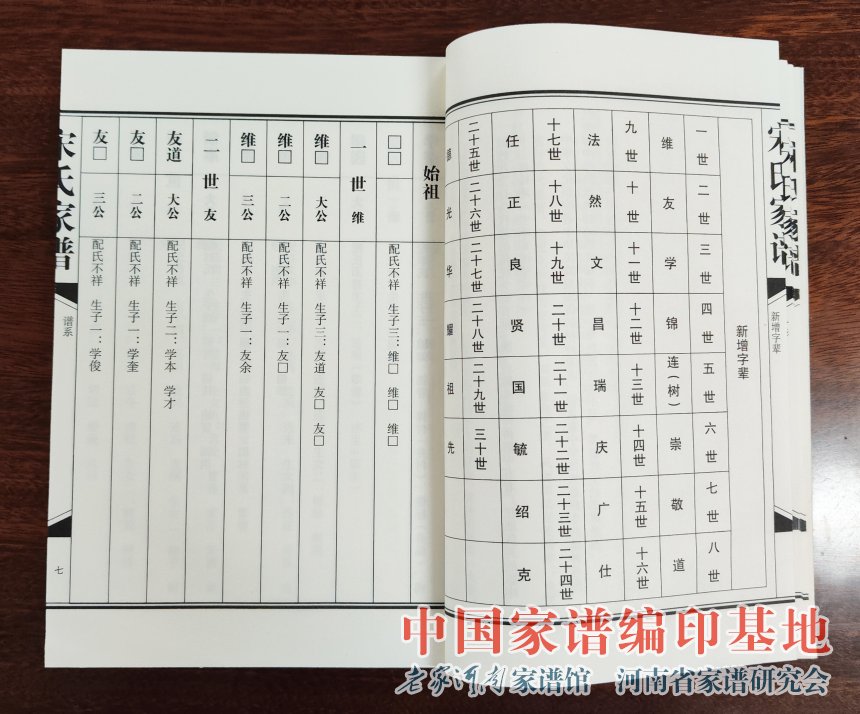 宋氏家谱
新增字辈
新增字辈
一世 二世 三世 四世 五世 六世 七世 八世
维 友 学 锦 连（树） 崇 敬 道
九世 十世 十一世 十二世 十三世 十四世 十五世 十六世
法 然 文 昌 瑞 庆 广 仕
十七世 十八世 十九世 二十世 二十一世 二十二世 二十三世 二十四世
任 正 良 贤 国 毓 绍 克
二十五世 二十六世 二十七世 二十八世 二十九世 三十世
光 华 耀 祖 先
始祖
□□ 配氏不祥 生子三：维□ 维□ 维□
一世 维
维□ 大公 配氏不祥 生子三：友道 友□ 友□
维□ 二公 配氏不祥 生子一：友□
维□ 三公 配氏不祥 生子一：友余
二世 友
友道 大公 配氏不祥 生子二：学本 学才
友□ 二公 配氏不祥 生子一：学奎
友□ 三公 配氏不祥 生子一：学俊
宋氏家谱
谱系
七
中国家谱编印基地
老家河南家谱馆 河南省家谱研究会